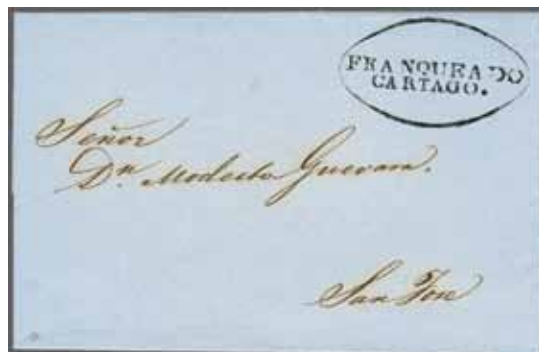 FRANQUEADO
CARTAGO.
Señor
Dn. Modesto Guevara.
San Jose